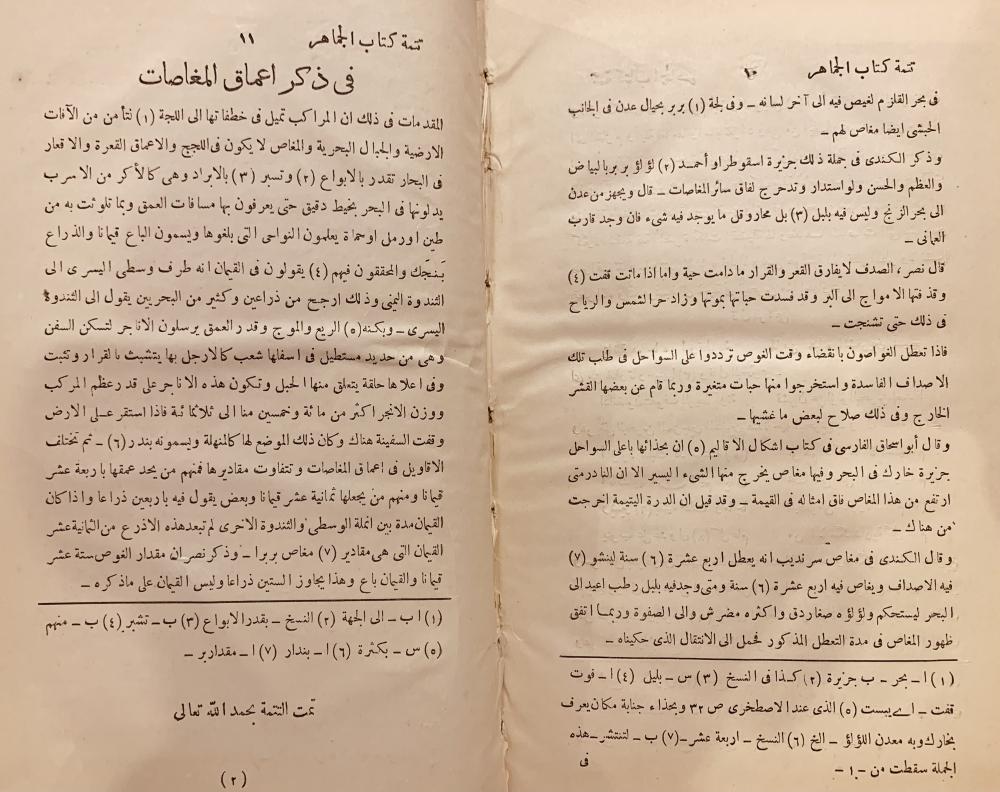 تتمة كتاب الجماهر ١٠
فى بحر القلزم لغيص فيه الى آخر لسانه ـ وفى لجة (١) بربر بحيال عدن فى الجانب
الحبشى ايضا مغاص لهم ـ
وذكر الكندى فى جملة ذلك جزيرة اسقوطر او أحمد (٢) لؤلؤ بربر بالبياض
والعظم والحسن ولو استدار وتدحرج لفاق سائر المغاصات ـ قال ويجهز من عدن
الى بحر الزنج وليس فيه بلبل (٣) بل محار وقل ما يوجد فيه شىء فان وجد قارب
العمانى ـ
قال نصر، الصدف لا يفارق القعر والقرار ما دامت حية واما اذا ماتت قفت (٤)
وقذفتها الامواج الى البر وقد فسدت حباتها بموتها وزاد حر الشمس والرياح
فى ذلك حتى تشنجت ـ
فاذا تعطل الغواصون بانقضاء وقت الغوص ترددوا على السواحل فى طلب تلك
الاصداف الفاسدة واستخرجوا منها حبات متغيرة وربما قام عن بعضها القشر
الخارج وفى ذلك صلاح لبعض ما غشيها ـ
وقال أبو اسحاق الفارسى فى كتاب اشكال الاقاليم (٥) ان بحذائها باعلى السواحل
جزيرة خارك فى البحر وفيها مغاص يخرج منها الشىء اليسير الا ان النادر متى
ارتفع من هذا المغاص فاق امثاله فى القيمة ـ وقد قيل ان الدرة اليتيمة اخرجت
من هناك ـ
وقال الكندى فى مغاص سرنديب انه يعطل اربع عشرة (٦) سنة لينشو (٧)
فيه الاصداف ويغاص فيه اربع عشرة (٦) سنة ومتى وجد فيه بلبل رطب اعيد الى
البحر ليستحكم ولؤلؤه صغار دق واكثره مضرش والى الصفوة وربما اتفق
ظهور المغاص فى مدة التعطل المذكور فحمل الى الانتقال الذى حكيناه ـ
(١) ا ـ بحر ـ ب جزيرة (٢) كذا فى النسخ (٣) س ـ بليل (٤) ا ـ فوت
قفت ـ اے يبست (٥) الذى عند الاصطخرى ص ٣٢ وبحذاء جنابة مكان يعرف
بخارك وبه معدن اللؤلؤ ـ الخ (٦) النسخ ـ اربعة عشر ـ (٧) ب ـ لتنتشر ـ هذه
الجملة سقطت من ـ ا ـ
فى
تتمة كتاب الجماهر ١١
فى ذكر اعماق المغاصات
المقدمات فى ذلك ان المراكب تميل فى خطفاتها الى اللجة (١) لتأمن من الآفات
الارضية والجبال البحرية والمغاص لا يكون فى اللجج والاعماق القعرة والاقعار
فى البحار تقدر بالابواع (٢) وتسبر (٣) بالابراد وهى كالاكر من الاسرب
يدلونها فى البحر بخيط دقيق حتى يعرفون بها مسافات العمق وبما تلوثت به من
طين او رمل او حماة يعلمون النواحى التى بلغوها ويسمون الباع قيمانا والذراع
والمحققون فيهم (٤) يقولون فى القيمان انه طرف وسطى اليسرى الى
الثندوة اليمنى وذلك ارجح من ذراعين وكثير من البحريين يقول الى الثندوة
اليسرى ـ وبكنه (٥) الريع والموج وقدر العمق يرسلون الاناجر لتسكن السفن
وهى من حديد مستطيل فى اسفلها شعب كالارجل بها يتشبث بالقرار وتثبت
وفى اعلاها حلقة يتعلق منها الحبل وتكون هذه الاناجر على قدر عظم المركب
ووزن الانجر اكثر من مائة وخمسين منا الى ثلاثمائة فاذا استقر على الارض
وقفت السفينة هناك وكان ذلك الموضع لها كالمنهلة ويسمونه بندر (٦) ـ ثم تختلف
الاقاويل فى اعماق المغاصات وتتفاوت مقاديرها فمنهم من يحد عمقها باربعة عشر
قيمانا ومنهم من يجعلها ثمانية عشر قيمانا وبعض يقول فيه باربعين ذراعا واذا كان
القيمان مدة بين انملة الوسطى والثندوة الاخرى لم تبعد هذه الاذرع من الثمانية عشر
القيمان التى هى مقادير (٧) مغاص بربرا ـ وذكر نصر ان مقدار الغوص ستة عشر
قيمانا والقيمان باع وهذا يجاوز الستين ذراعا وليس القيمان على ما ذكره ـ
(١) ا ب ـ الى الجهة (٢) النسخ ـ بقدر الابواع (٣) ب ـ تشبر (٤) ب ـ منهم
(٥) س ـ بكثرة (٦) ا ـ بندار (٧) ا ـ مقداربر ـ
تمت التتمة بحمد الله تعالى
(٢)